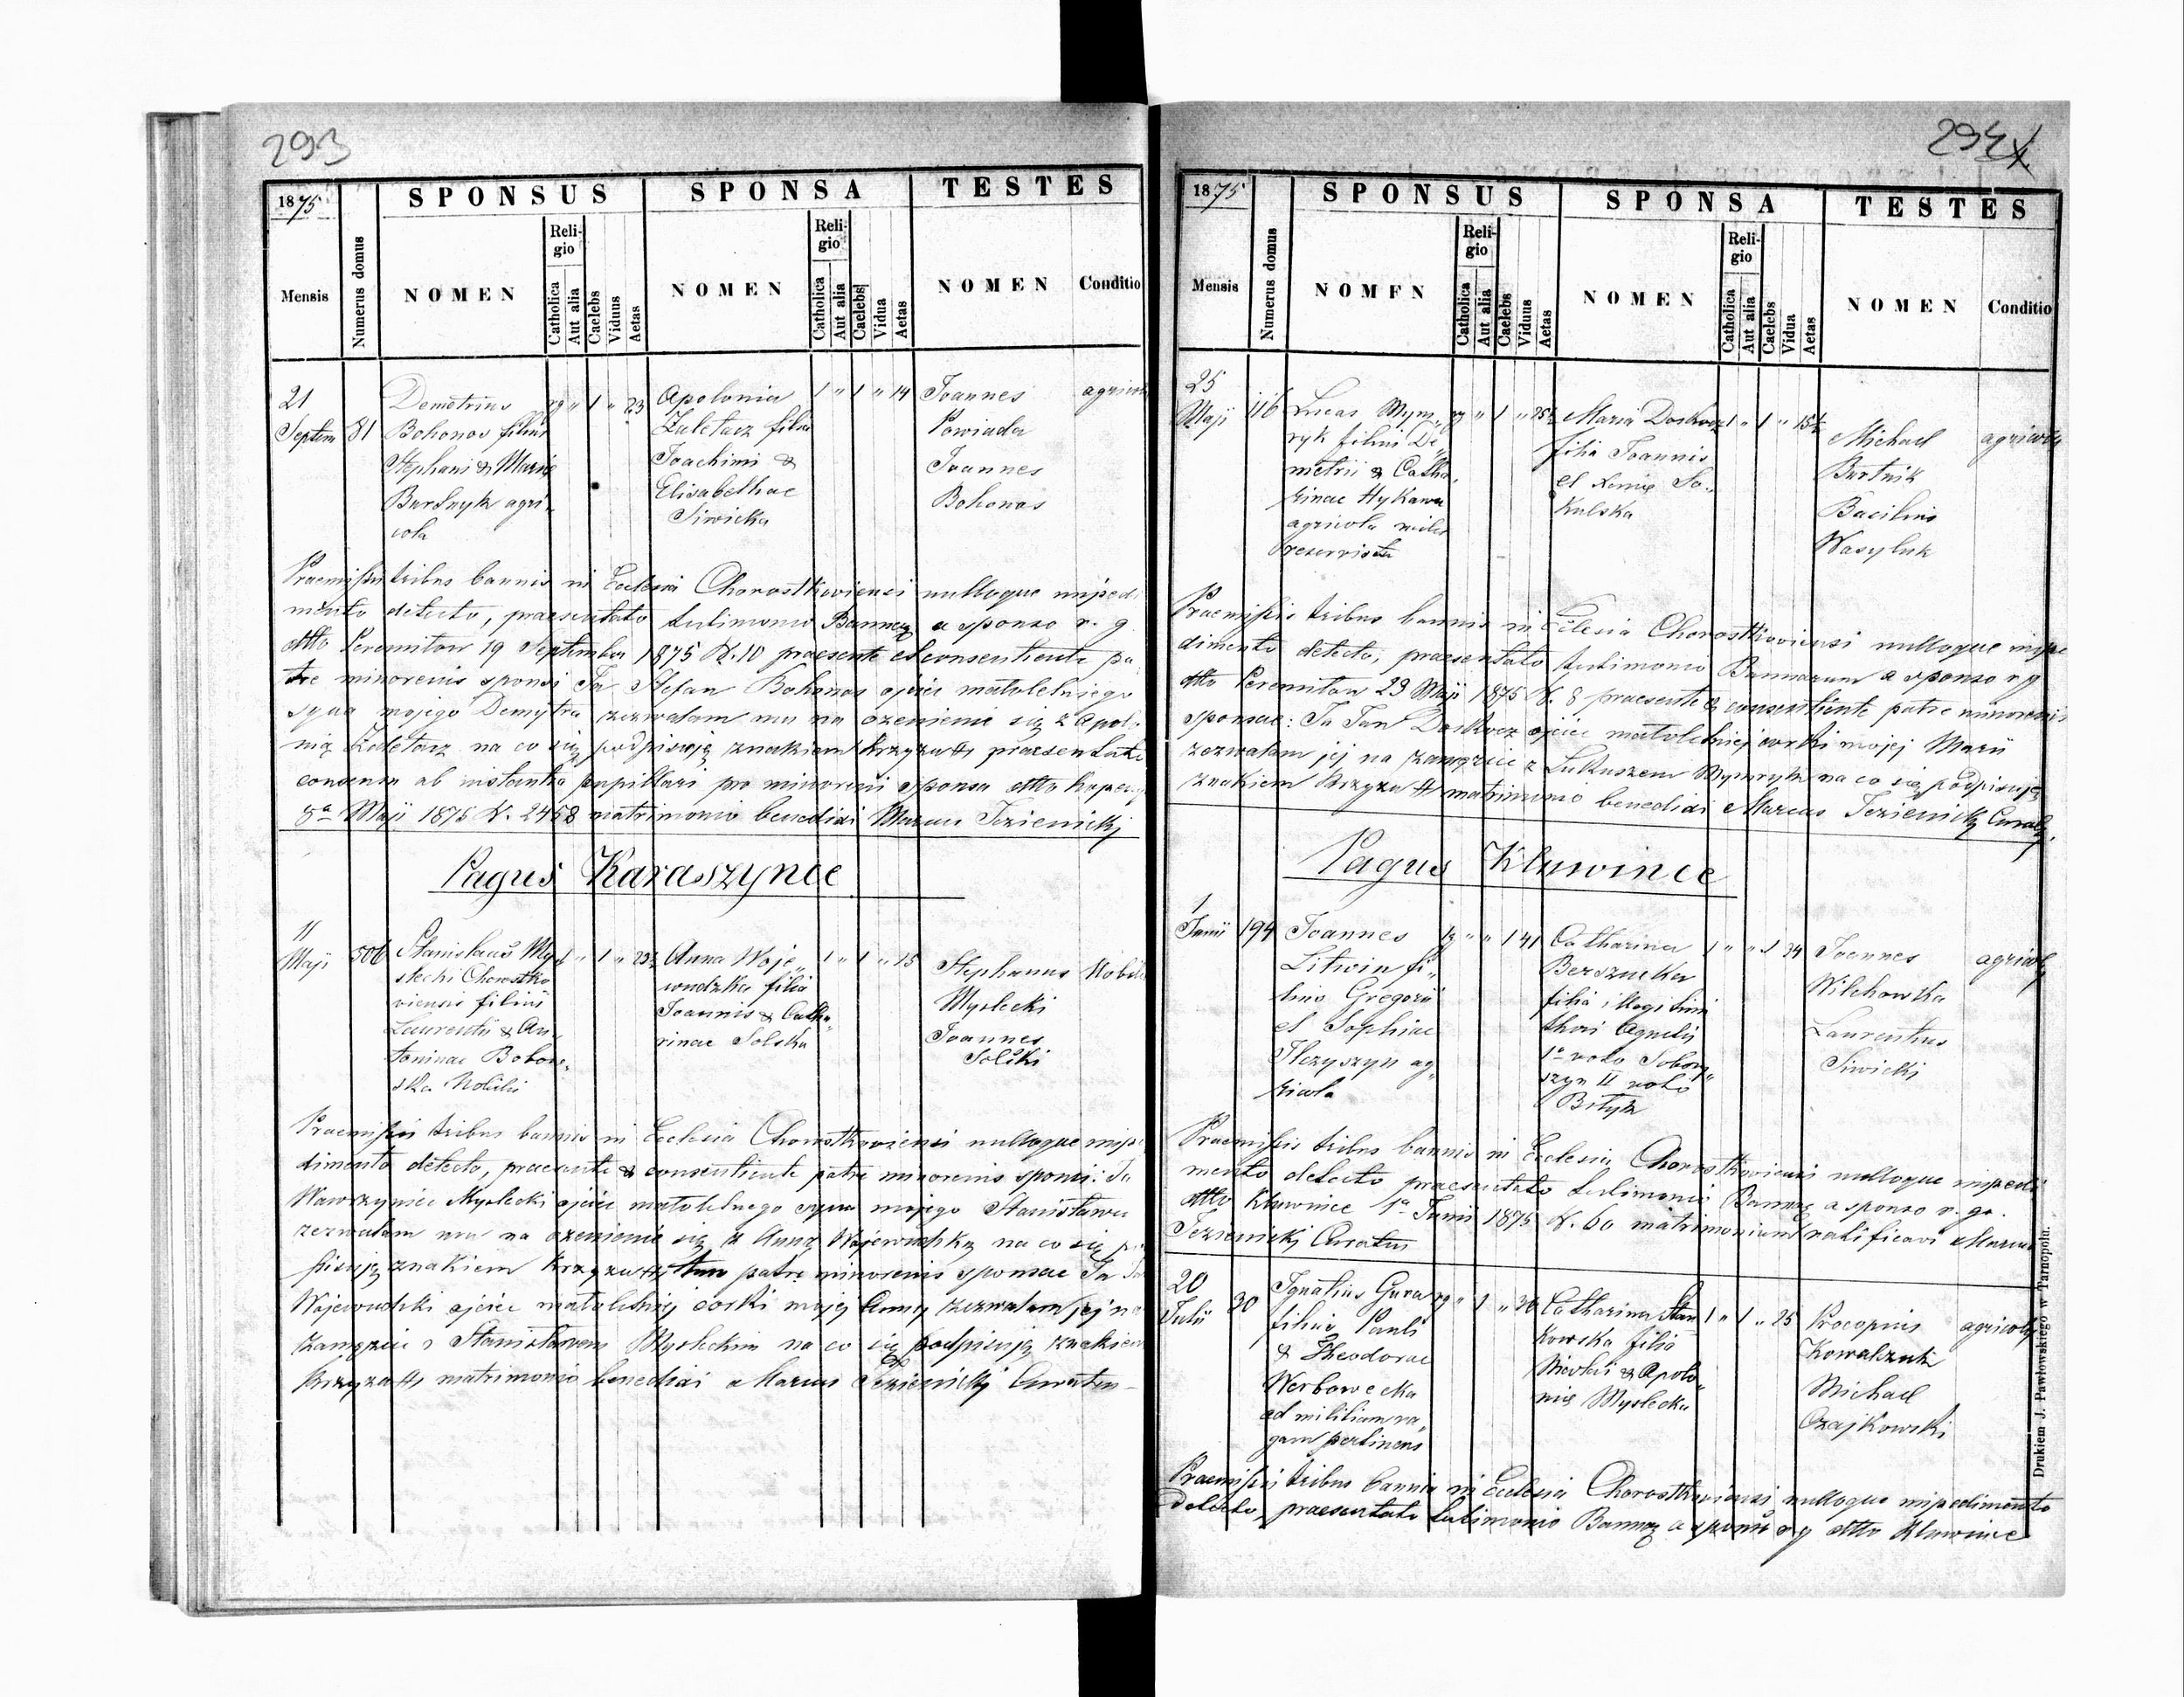 293
1875
SPONSUS SPONSA TESTES
Mensis Numerus domus NOMEN Religio Catholica Aut alia Caelebs Viduus Aetas NOMEN Religio Catholica Aut alia Caelebs Vidua Aetas NOMEN Conditio
21 Septem 81
Demetrius rg " 1 " 23
Bohonos filius
Stephani & Marie
Bursnyk agri-
cola
Apolonia 1 " 1 " 14
Zaletacz filia
Joachimi &
Elisabethae
Siwicka
Joannes
Powiada
Joannes
Bohonos
Praemissis tribus bannis in Ecclesia Chorostkoviensi nulloque impedi
mento detecto, praesentato testimonio Bannorum a sponso r. g.
dtto Peremilow 19 Septembr 1875 N. 10 praesente et consentiente pa
tre minorenis sponsi Ja Stefan Bohonos ojciec małoletniego
syna mojego Demytra zezwalam mu na ożenienie się z Apol-
nią Zaletacz na co się podpisuję znakiem krzyża praesentato
consensu ab instantia pupillari pro minoreni sponsa dtto
8a Maji 1875 N. 2458 matrimonio benedixi Marcus Jezienicki
Pagus Karaszynce
11 Maji 506
Stanislaus My 1 " 1 "
słecki Chorostko
viensis filius
Laurentii & An-
toninae Bobow-
ska Nobilis
Anna Woje- 1 " 1 " 15
wudzka filia
Joannis & Catha-
rinae Solska
Stephanus
Mysłecki
Joannes
Solski
Praemissis tribus bannis in Ecclesia Chorostkoviensi nulloque impe
dimento detecto, praesente & consentiente patre minorenis sponsi: Ja
Wawrzyniec Mysłecki ojciec małoletnego syna mojego Stanisława
zezwalam mu na ożenienie się z Anną Wojewudzką na co się po
pisuję znakiem krzyża patre minorenis sponsae Ja
Wojewudzki ojciec małoletniej corki mojej Anny zezwalam jej na
zamązcie z Stanisławem Mysłeckim na co się podpisuję znakiem
krzyża matrimonio benedixi Marcus Jezienicki Curatus
294
1875
SPONSUS SPONSA TESTES
Mensis Numerus domus NOMEN Religio Catholica Aut alia Caelebs Viduus Aetas NOMEN Religio Catholica Aut alia Caelebs Vidua Aetas NOMEN Conditio
25 Maji 116
Lucas Mym-
ryk filius De
metrii & Catha-
rinae Hykawa
agricola miles
reservista
Maria Doskocz 1 " 1 " 15½
filia Joannis
et Xenie So-
kulska
Michael
Burtnik
Bacilius
Wasyluk
Praemissis tribus bannis in Ecclesia Chorostkoviensi nulloque impe
dimento detecto, praesentato testimonio Bannorum a sponso r g
dtto Peremilow 23 Maji 1875 N. 8 praesente & consentiente patre minorenis
sponsae: Ja Jan Doskocz ojciec małoletniej corki mojej Marii
zezwalam jej na zamązcie z Lukaszem Mymryk na co się podpisuję
znakiem krzyża matrimonio benedixi Marcus Jezienicki Curatus
Pagus Kluwince
1 Junii 194
Joannes rg " " 1 41
Litwin fi-
lius Gregorii
et Sophiae
agricola
Catharina 1 " " 1 34
filia illegitimi
thori Agnetis
1o voto Sobow-
szyn II voto
Bilyk
Joannes
Wilchowka
Laurentius
Siwicki
Praemissis tribus bannis in Ecclesia Chorostkoviensi nulloque impedi
mento detecto praesentato testimonio Bannorum a sponso r. gr.
dtto Kluwince 1a Junii 1875 N. 60 matrimonium ratificavi Marcus
Jezienicki Curatus
20 Julii 30
Ignatius Gura rg " 1 " 36
filius Pauli
& Theodorae
Werbowecka
ad militiam va-
gam pertinens
Catharina Stan 1 " 1 " 25
kowska filia
Nicolai & Apolo-
nie Mysłecka
Procopius
Kowalczuk
Michael
Czajkowski
Praemissis tribus bannis in Ecclesia Chorostkoviensi nulloque impedimento
detecto, praesentato testimonio Bannorum a sponso r g dtto Kluwince
Drukiem J. Pawłowskiego w Tarnopolu.